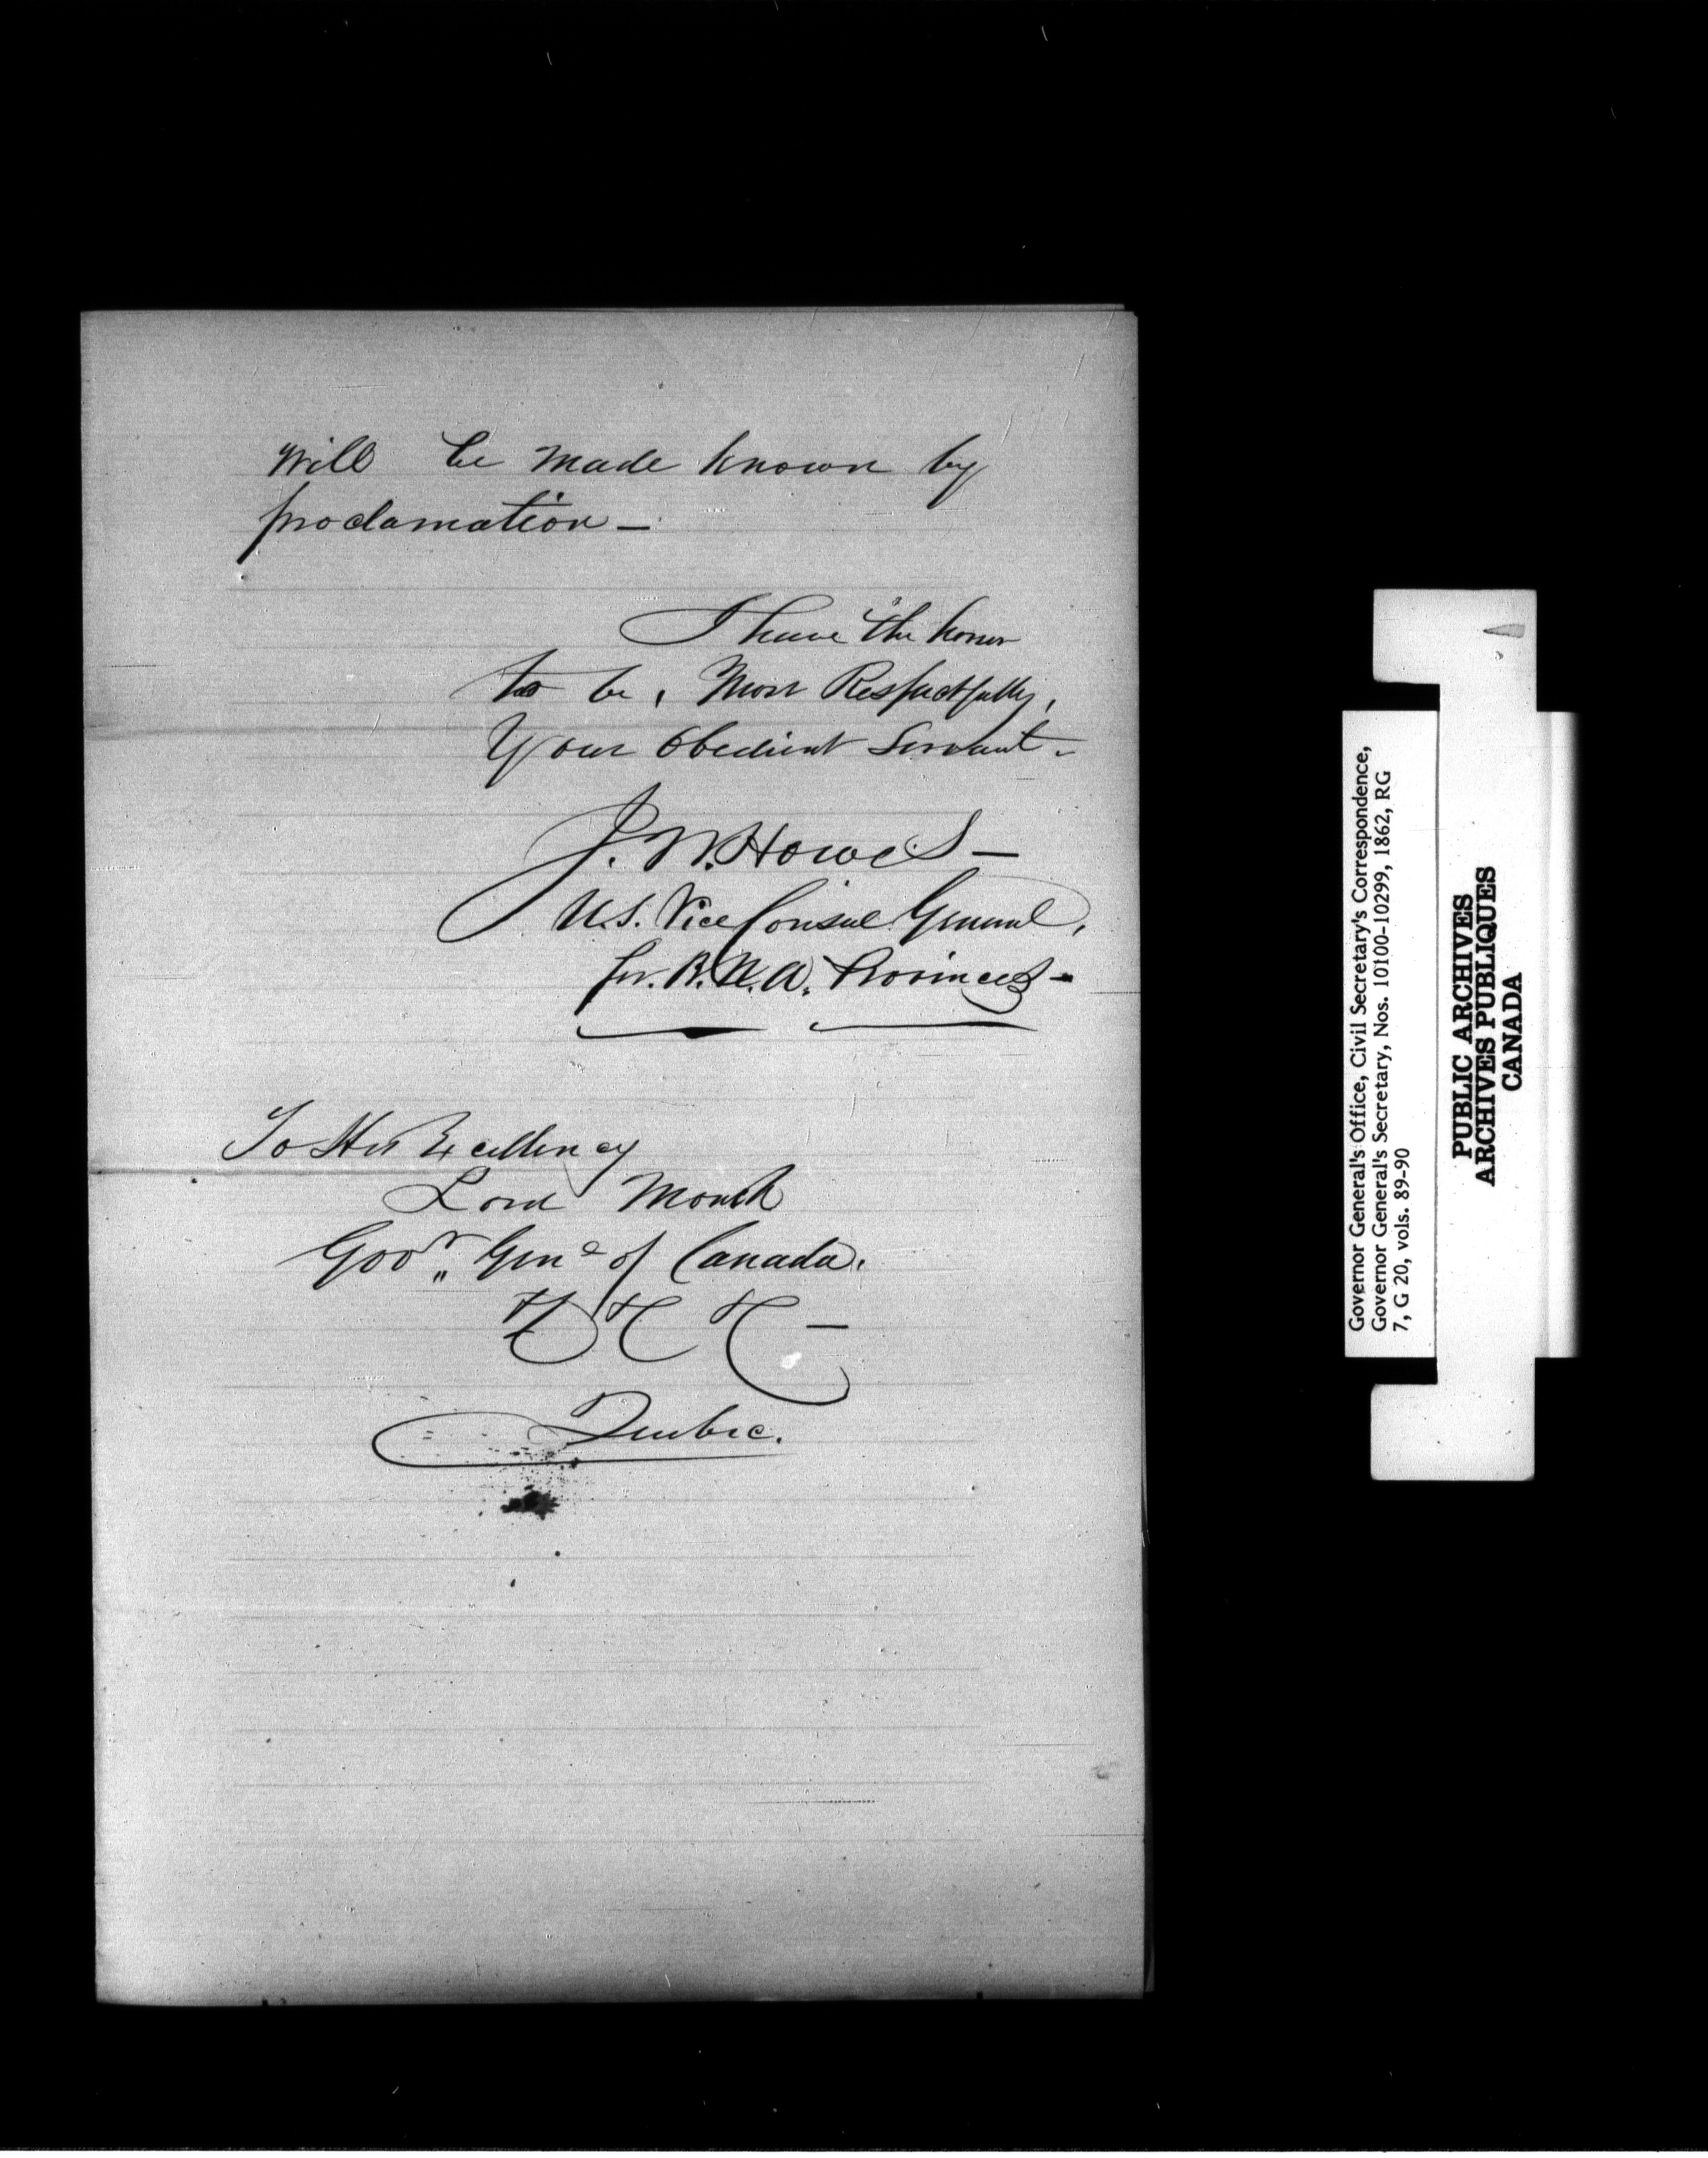 Will be made known by
proclamation —
I have the honor
to be, Most Respectfully,
Your Obedient Servant.
J. W. Howes —
U.S. Vice Consul General,
for B. N. A. Provinces —
To His Excellency
Lord Monck
Govr. Genl of Canada.
&c &c &c —
Quebec.
Governor General's Office, Civil Secretary's Correspondence,
Governor General's Secretary, Nos. 10100-10299, 1862, RG
7, G 20, vols. 89-90
PUBLIC ARCHIVES
ARCHIVES PUBLIQUES
CANADA